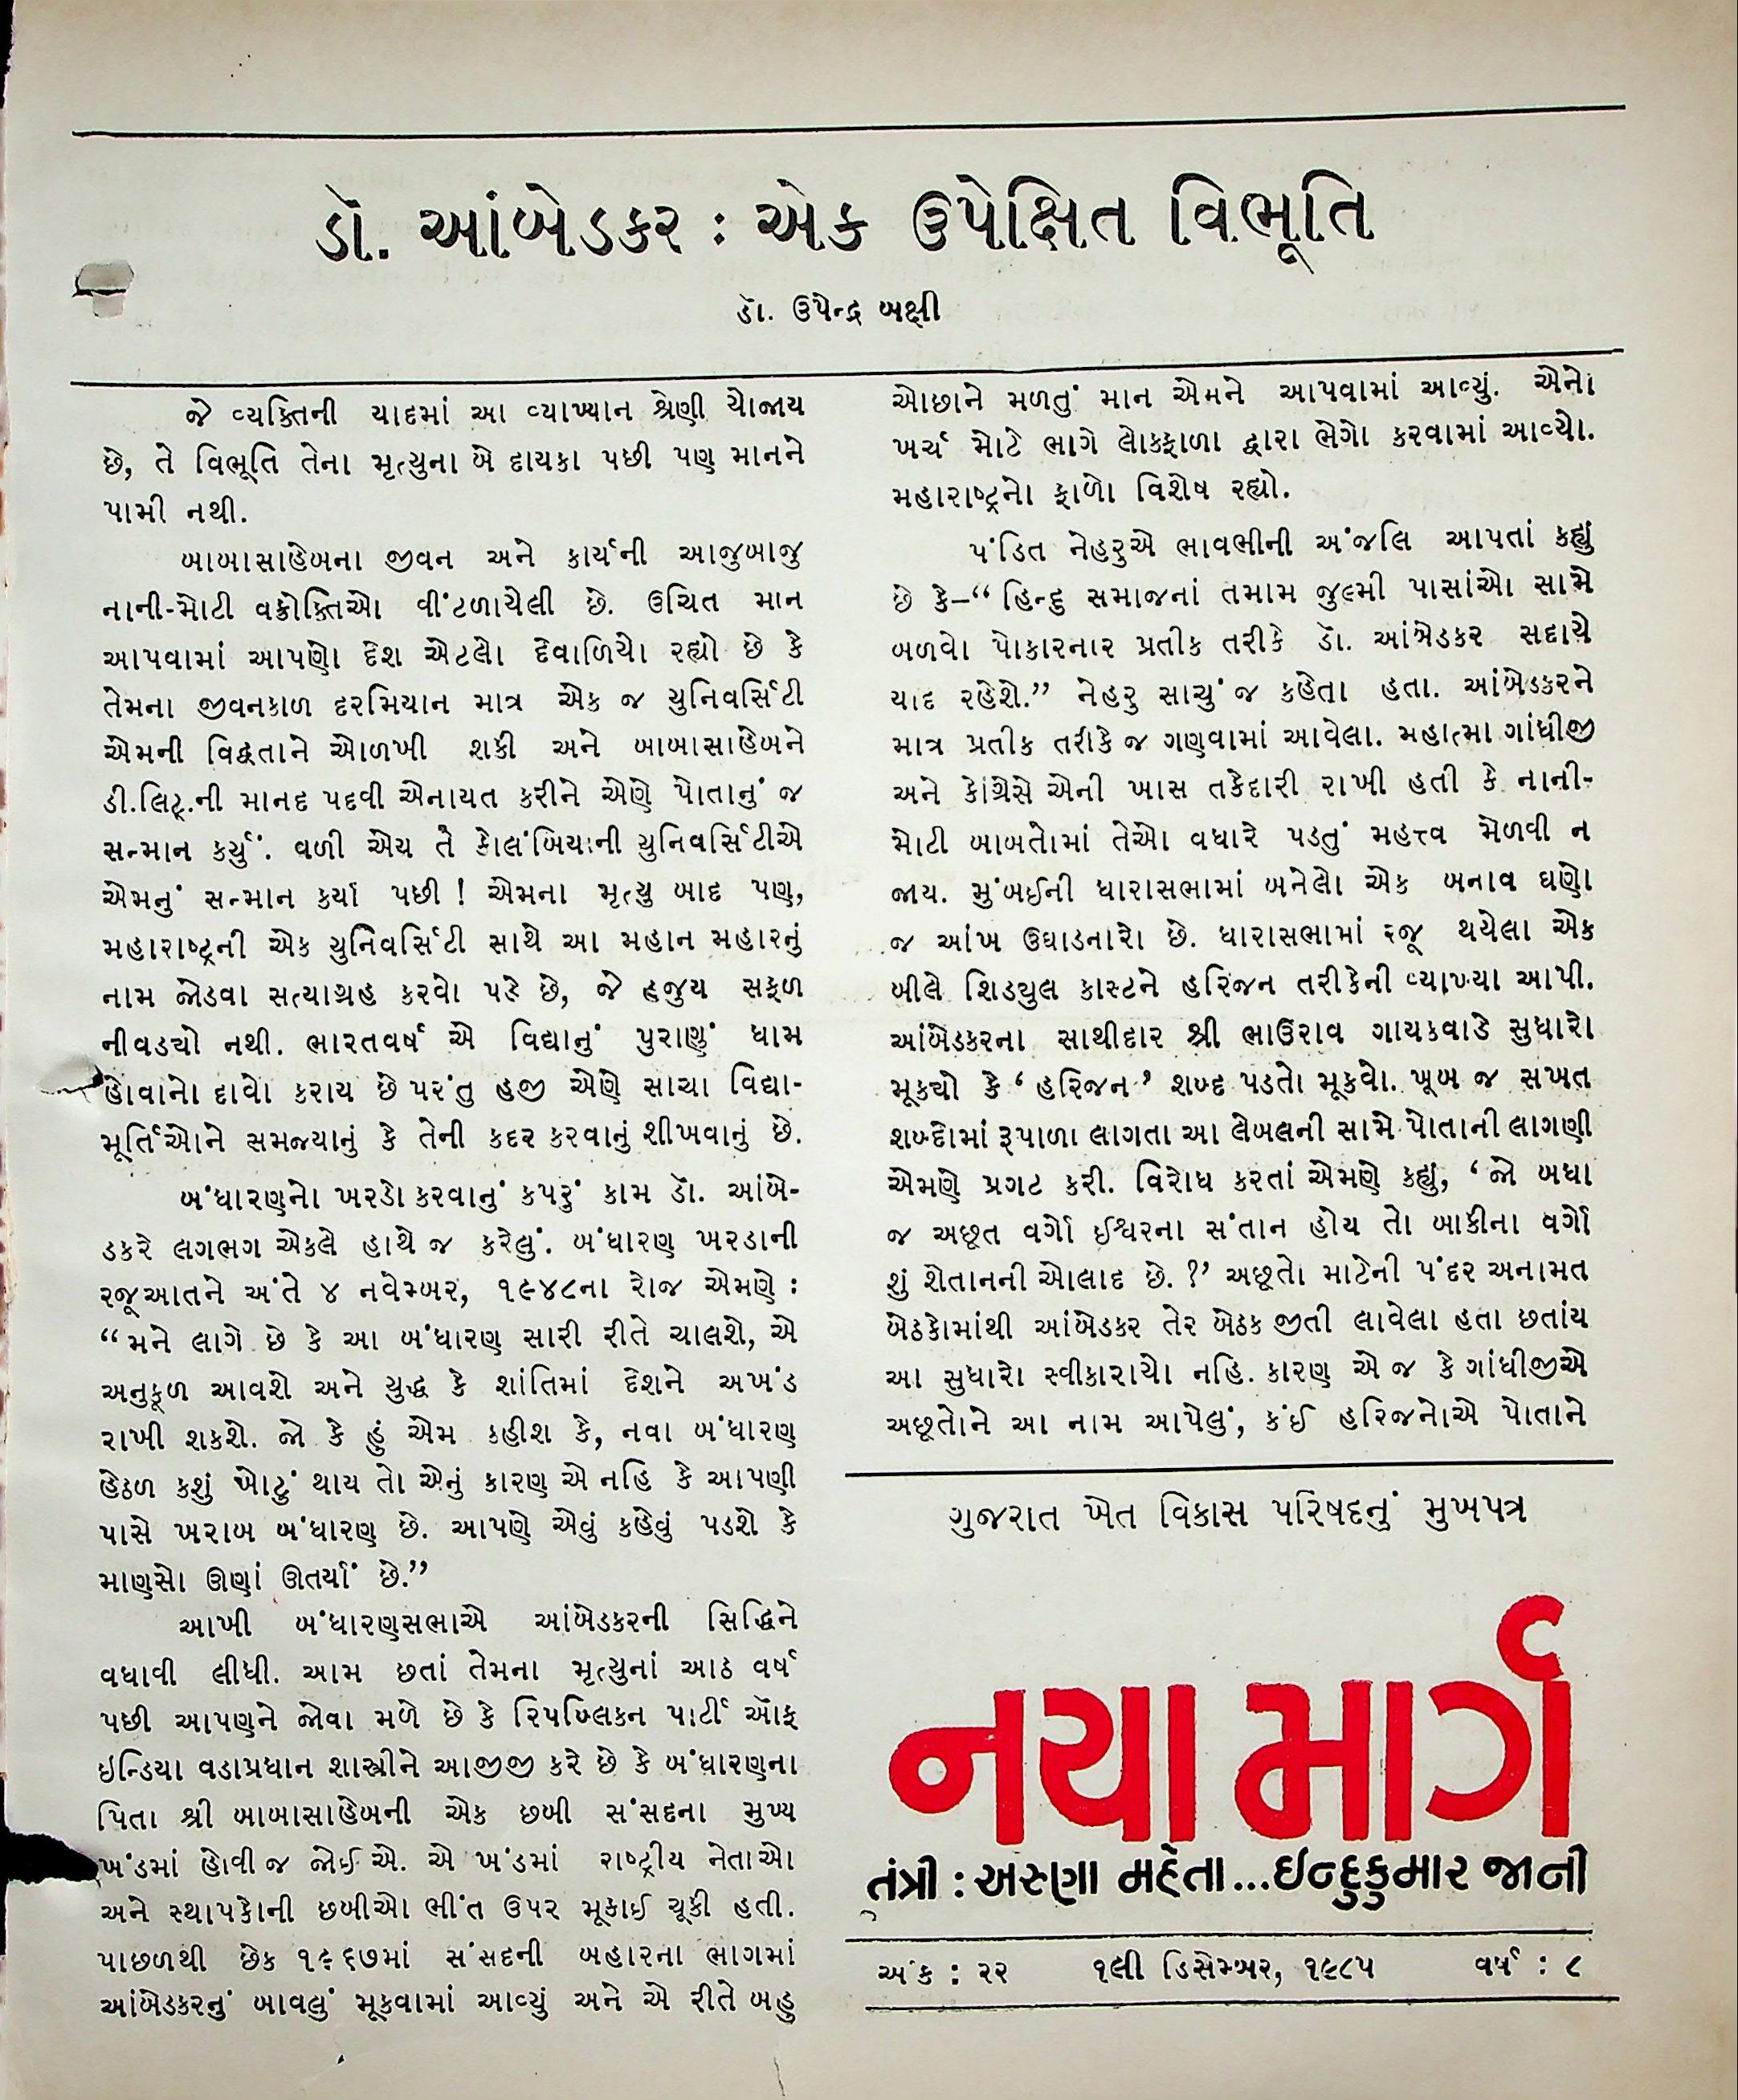 ડૉ. આંબેડકર : એક ઉપેક્ષિત વિભૂતિ
ડૉ. ઉપેન્દ્ર બક્ષી
જે વ્યક્તિની યાદમાં આ વ્યાખ્યાન શ્રેણી યોજાય
છે, તે વિભૂતિ તેના મૃત્યુના બે દાયકા પછી પણ માનને
પામી નથી.
બાબાસાહેબના જીવન અને કાર્યની આજુબાજુ
નાની-મોટી વક્રોક્તિઓ વીંટળાયેલી છે. ઉચિત માન
આપવામાં આપણો દેશ એટલો દેવાળિયો રહ્યો છે કે
તેમના જીવનકાળ દરમિયાન માત્ર એક જ યુનિવર્સિટી
એમની વિદ્વતાને ઓળખી શકી અને બાબાસાહેબને
ડી.લિટ્.ની માનદ પદવી એનાયત કરીને એણે પોતાનું જ
સન્માન કર્યું. વળી એય તે કોલંબિયાની યુનિવર્સિટીએ
એમનું સન્માન કર્યા પછી ! એમના મૃત્યુ બાદ પણ,
મહારાષ્ટ્રની એક યુનિવર્સિટી સાથે આ મહાન મહારનું
નામ જોડવા સત્યાગ્રહ કરવો પડે છે, જે હજુય સફળ
નીવડ્યો નથી. ભારતવર્ષ એ વિદ્યાનું પુરાણું ધામ
હોવાનો દાવો કરાય છે પરંતુ હજી એણે સાચા વિદ્યા-
મૂર્તિઓને સમજયાનું કે તેની કદર કરવાનું શીખવાનું છે.
બંધારણનો ખરડો કરવાનું કપરું કામ ડૉ. આંબે-
ડકરે લગભગ એકલે હાથે જ કરેલું. બંધારણ ખરડાની
રજૂઆતને અંતે ૪ નવેમ્બર, ૧૯૪૮ના રોજ એમણે :
“મને લાગે છે કે આ બંધારણ સારી રીતે ચાલશે, એ
અનુકૂળ આવશે અને યુદ્ધ કે શાંતિમાં દેશને અખંડ
રાખી શકશે. જો કે હું એમ કહીશ કે, નવા બંધારણ
હેઠળ કશું ખોટું થાય તો એનું કારણ એ નહિ કે આપણી
પાસે ખરાબ બંધારણ છે. આપણે એવું કહેવું પડશે કે
માણસો ઊણાં ઊતર્યાં છે.”
આખી બંધારણસભાએ આંબેડકરની સિદ્ધિને
વધાવી લીધી. આમ છતાં તેમના મૃત્યુનાં આઠ વર્ષ
પછી આપણને જોવા મળે છે કે રિપબ્લિકન પાર્ટી ઑફ
ઇન્ડિયા વડાપ્રધાન શાસ્ત્રીને આજીજી કરે છે કે બંધારણના
પિતા શ્રી બાબાસાહેબની એક છબી સંસદના મુખ્ય
ખંડમાં હોવી જ જોઈએ. એ ખંડમાં રાષ્ટ્રીય નેતાઓ
અને સ્થાપકોની છબીઓ ભીંત ઉપર મૂકાઈ ચૂકી હતી.
પાછળથી છેક ૧૯૬૭માં સંસદની બહારના ભાગમાં
આંબેડકરનું બાવલું મૂકવામાં આવ્યું અને એ રીતે બહુ
ઓછાને મળતું માન એમને આપવામાં આવ્યું. એનો
ખર્ચ મોટે ભાગે લોકફાળા દ્વારા ભેગો કરવામાં આવ્યો.
મહારાષ્ટ્રનો ફાળો વિશેષ રહ્યો.
પંડિત નેહરુએ ભાવભીની અંજલિ આપતાં કહ્યું
છે કે–“હિન્દુ સમાજનાં તમામ જુલ્મી પાસાંઓ સામે
બળવો પોકારનાર પ્રતીક તરીકે ડૉ. આંબેડકર સદાયે
યાદ રહેશે.” નેહરુ સાચું જ કહેતા હતા. આંબેડકરને
માત્ર પ્રતીક તરીકે જ ગણવામાં આવેલા. મહાત્મા ગાંધીજી
અને કોંગ્રેસે એની ખાસ તકેદારી રાખી હતી કે નાની-
મોટી બાબતોમાં તેઓ વધારે પડતું મહત્ત્વ મેળવી ન
જાય. મુંબઈની ધારાસભામાં બનેલો એક બનાવ ઘણો
જ આંખ ઉઘાડનારો છે. ધારાસભામાં રજૂ થયેલા એક
બીલે શિડ્યુલ કાસ્ટને હરિજન તરીકેની વ્યાખ્યા આપી.
આંબેડકરના સાથીદાર શ્રી ભાઉરાવ ગાયકવાડે સુધારો
મૂક્યો કે ‘હરિજન’ શબ્દ પડતો મૂકવો. ખૂબ જ સખત
શબ્દોમાં રૂપાળા લાગતા આ લેબલની સામે પોતાની લાગણી
એમણે પ્રગટ કરી. વિરોધ કરતાં એમણે કહ્યું, ‘જો બધા
જ અછૂત વર્ગો ઈશ્વરના સંતાન હોય તો બાકીના વર્ગો
શું શેતાનની ઓલાદ છે. ?’ અછૂતો માટેની પંદર અનામત
બેઠકોમાંથી આંબેડકર તેર બેઠક જીતી લાવેલા હતા છતાંય
આ સુધારો સ્વીકારાયો નહિ. કારણ એ જ કે ગાંધીજીએ
અછૂતોને આ નામ આપેલું, કંઈ હરિજનોએ પોતાને
ગુજરાત ખેત વિકાસ પરિષદનું મુખપત્ર
નયા માર્ગ
તંત્રી : અરુણા મહેતા...ઇન્દુકુમાર જાની
અંક : ૨૨ ૧લી ડિસેમ્બર, ૧૯૮૫ વર્ષ : ૮